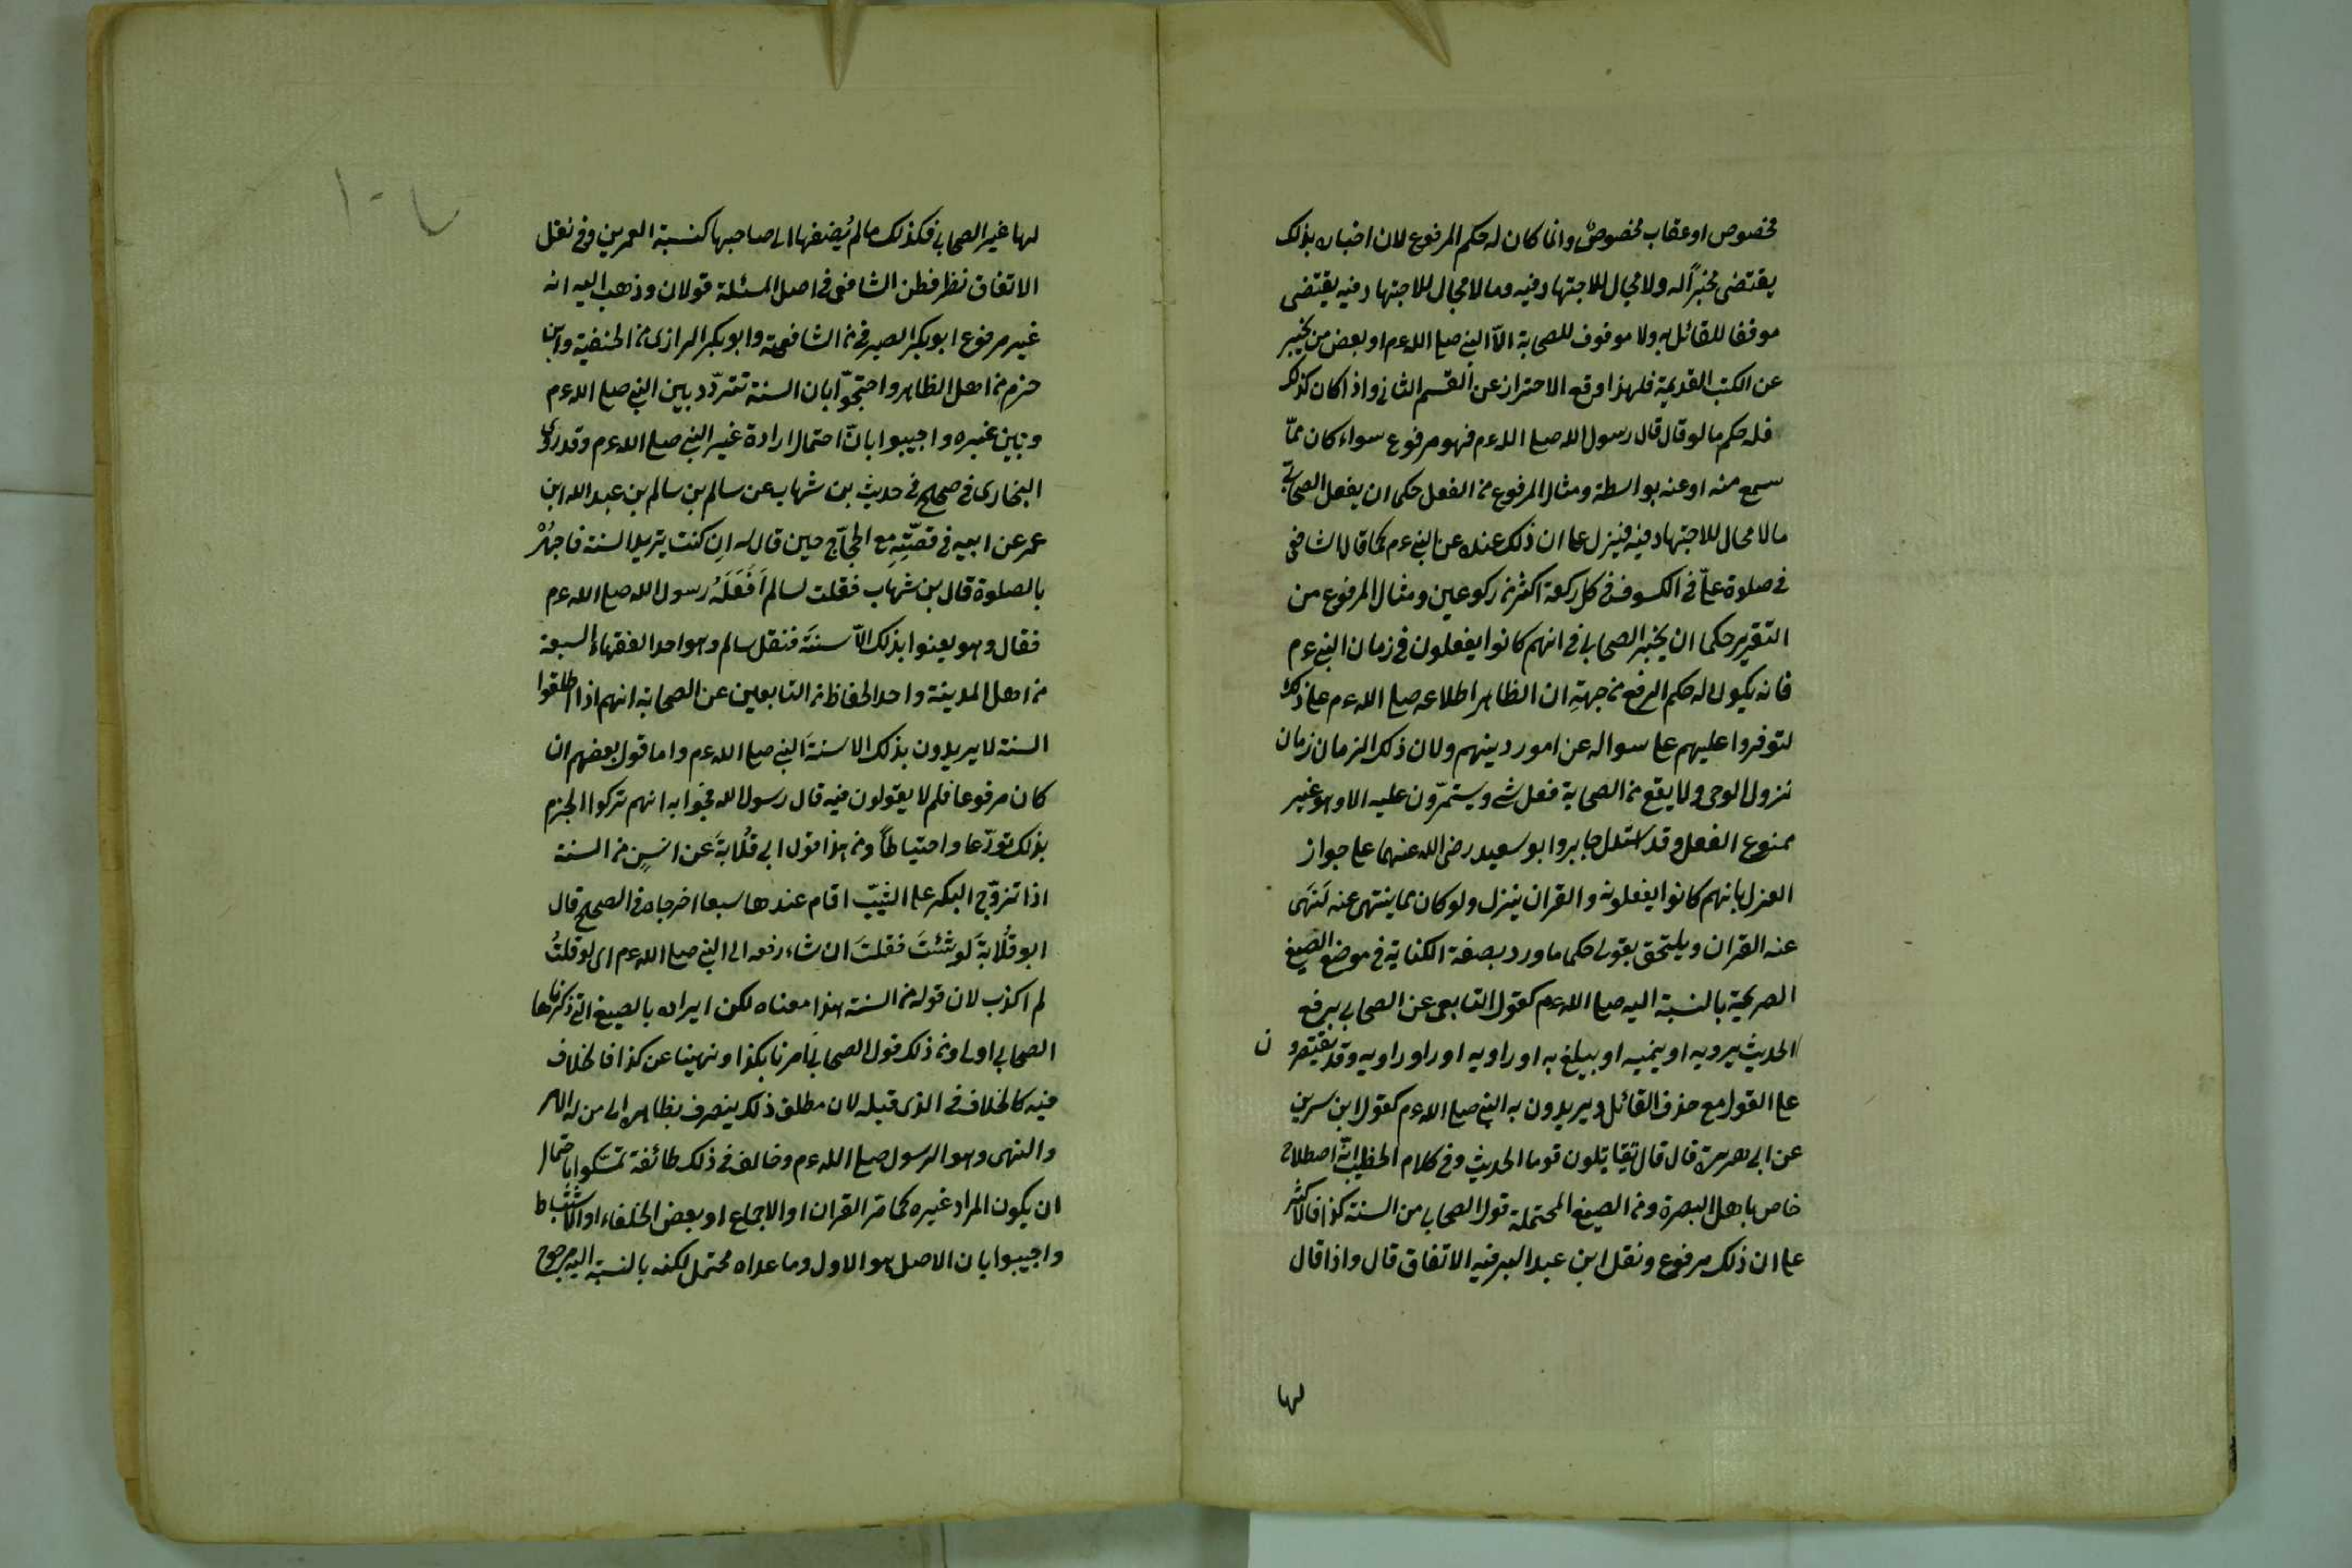 مخصوص او عقاب مخصوص وانما كان له حكم المرفوع لان اخباره بذلك
يقتضى مخبراً له ولا مجال للاجتهاد فيه وما لا مجال للاجتهاد فيه يقتضى
موقفا للقائل به ولا موقوف للصحابة الاّ النبى صلى الله ءم او بعض من يخبر
عن الكتب القديمة فلهذا وقع الاحتراز عن القسم الثانى واذا كان كذلك
فله حكم ما لو قال قال رسول الله صلى الله ءم فهو مرفوع سواء كان ممّا
سمع منه او عنه بواسطة ومثال المرفوع من الفعل حكما ان يفعل الصحابىّ
ما لا مجال للاجتهاد فيه فينزل على ان ذلك عنده عن النبى ءم كما قال الشافعى
فى صلوة علىّ فى الكسوف فى كل ركعة اكثر من ركوعين ومثال المرفوع من
التقرير حكما ان يخبر الصحابى فى انهم كانوا يفعلون فى زمان النبى ءم
فانه يكون له حكم الرفع من جهةِ ان الظاهر اطلاعه صلى الله ءم على ذلك
لتوفروا عليهم على سواله عن امور دينهم ولان ذلك الزمان زمان
نزول الوحى ولا يقع من الصحابة فعل شئ ويستمرّون عليه الا وهو غير
ممنوع الفعل وقد استدل جابر وابو سعيد رضى الله عنهما على جواز
العزل بانهم كانوا يفعلونه والقران ينزل ولو كان مما ينتهى عنه لَنَهَى
عنه القران ويلتحق بقولى حكما ما ورد بصفة الكناية فى موضع الصيغ
الصريحة بالنسبة اليه صلى الله ءم كقول التابعى عن الصحابى يرفع
الحديث يرويه او ينميه او يبلغ به او راويه او راو راويه وقد يقتصرون
على القول مع حذف القائل ويريدون به النبى صلى الله ءم كقول ابن سرين
عن ابى هريرة قال قال تقاتلون قوما الحديث وفى كلام الخطيب انّه اصطلاح
خاص باهل البصرة ومن الصيغ المحتملة قول الصحابى من السنة كذا فالاكثر
على ان ذلك مرفوع ونقل ابن عبد البر فيه الاتفاق قال واذا قال
لها
١٠٧
لها غير الصحابى فكذلك ما لم يُضفها الى صاحبها كنسبة العمرين وفى نقل
الاتفاق نظر فطن الشافعى فى اصل المسئلة قولان وذهب اليه انه
غير مرفوع ابو بكر الصيرفى من الشافعية وابو بكر الرازى من الحنفية وابن
حزم من اهل الظاهر واحتجّوا بان السنة تتردّد بين النبى صلى الله ءم
وبين غيره واجيبوا بانّ احتمال ارادة غير النبى صلى الله ءم وقد روى
البخارى فى صحيحه فى حديث بن شهاب عن سالم بن سالم بن عبد الله ابن
عمر عن ابيه فى قصّتِهِ مع الحجّاج حين قال له اِن كنت يتريد السنة فاجهُرْ
بالصلوة قال بن شهاب فقلت لسالم اَفَعَلَهُ رسول الله صلى الله ءم
فقال وهو يعنوا بذلك الاّ سنتَه فنقل سالم وهو احد الفقهاء السبعة
من اهل المدينة واحد الحفاظ من التابعين عن الصحابة انهم اذا اطلقوا
السنة لا يريدون بذلك الا سنةَ النبى صلى الله ءم واما قول بعضهم ان
كان مرفوعا فلم لا يقولون فيه قال رسول الله فجوابه انهم تركوا الجزم
بذلك تورّعا واحتياطاً ومن هذا قول ابى قُلابةَ عن انسٍ من السنة
اذا تزوّج البكر على الثيّب اقام عندها سبعا اخرجاه فى الصحيح قال
ابو قُلابةَ لو شئتَ فقلتَ ان شاء رفعه الى النبى صلى الله ءم اى لو قلتُ
لم اكذب لان قوله من السنة هذا معناه لكن ايراده بالصيغ التى ذكرناها
الصحابى اولى ومن ذلك قول الصحابى اَمرنا بكذا ونهينا عن كذا فالخلاف
فيه كالخلاف فى الذى قبله لان مطلق ذلك ينصرف بظاهره الى من له الامر
والنهى وهو الرسول صلى الله ءم وخالف فى ذلك طائفة تمسّكوا باحتمال
ان يكون المراد غيره كما مر القران او الاجماع او بعض الخلفاء او الاستنباط
واجيبوا بان الاصل هو الاول وما عداه محتمل لكنه بالنسبة اليه مرجوح